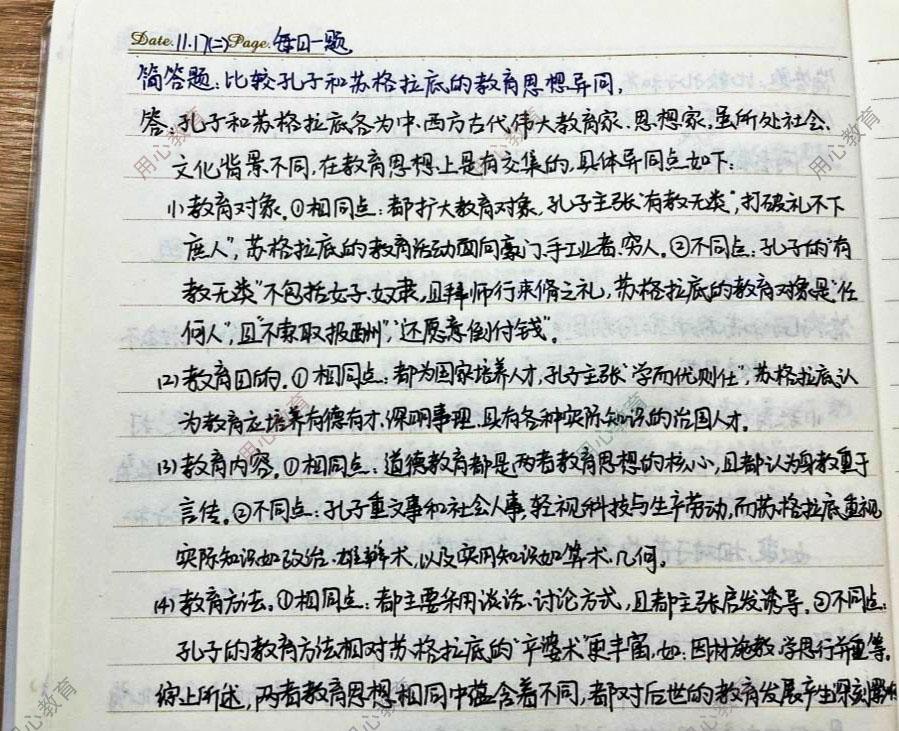 Date. 11.17(二) Page. 每日一题
简答题:比较孔子和苏格拉底的教育思想异同。
答:孔子和苏格拉底各为中、西方古代伟大教育家、思想家,虽所处社会、
文化背景不同,在教育思想上是有交集的,具体异同点如下:
(1)教育对象。①相同点:都扩大教育对象,孔子主张“有教无类”,打破“礼不下
庶人”,苏格拉底的教育活动面向豪门、手工业者、穷人。②不同点:孔子的“有
教无类”不包括女子、奴隶,且拜师行束脩之礼,苏格拉底的教育对象是“任
何人”,且“不索取报酬”,“还愿意倒付钱”。
(2)教育目的。①相同点:都为国家培养人才,孔子主张“学而优则仕”,苏格拉底认
为教育应培养有德有才、深明事理、具有各种实际知识的治国人才。
(3)教育内容。①相同点:道德教育都是两者教育思想的核心,且都认为身教重于
言传。②不同点:孔子重文事和社会人事,轻视科技与生产劳动,而苏格拉底重视
实际知识如政治、雄辩术,以及实用知识如算术、几何。
(4)教育方法。①相同点:都主要采用谈话、讨论方式,且都主张启发诱导。②不同点:
孔子的教育方法相对苏格拉底的“产婆术”更丰富,如:因材施教、学思行并重等。
综上所述,两者教育思想相同中蕴含着不同,都对后世的教育发展产生深刻影响
用心教育
用心教育
用心教育
用心教育
用心教育
用心教育
用心教育